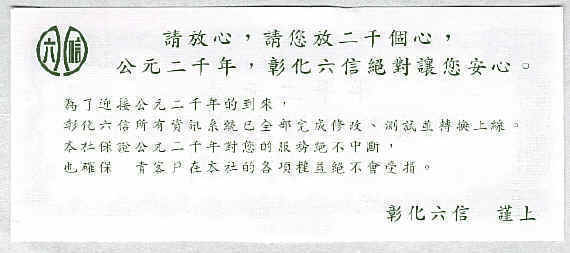 六信
請放心，請您放二千個心，
公元二千年，彰化六信絕對讓您安心。
為了迎接公元二千年的到來，
彰化六信所有資訊系統已全部完成修改、測試並轉換上線。
本社保證公元二千年對您的服務絕不中斷，
也確保　貴客戶在本社的各項權益絕不會受損。
彰化六信　謹上